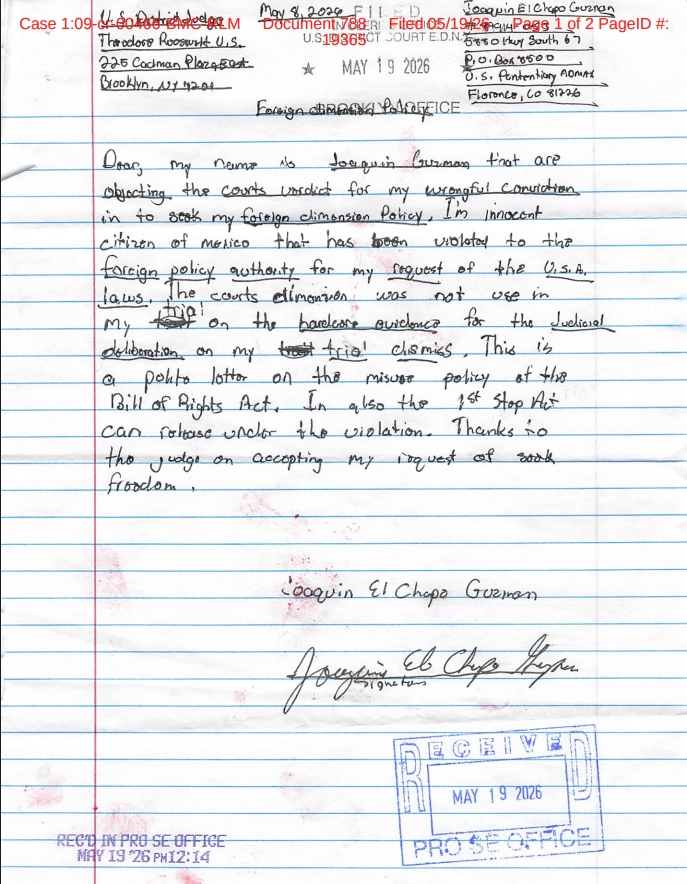 Case 1:09-cr-00466-BMC-RLM Document 788 Filed 05/19/26 Page 1 of 2 PageID #: 19365
U.S. District Judge
Theodore Roosevelt U.S.
225 Cadman Plaza East
Brooklyn, NY 11201
May 8, 2026
FILED
U.S. DISTRICT COURT E.D.N.Y.
★ MAY 19 2026
BROOKLYN OFFICE
Joaquin El Chapo Guzman
5880 Hwy South 67
P.O. Box 8500
U.S. Penitentiary ADMAX
Florence, CO 81226
Foreign dimension Policy
Dear, my name is Joaquin Guzman that are
objecting the courts verdict for my wrongful conviction
in to seek my foreign dimension Policy. I'm innocent
citizen of mexico that has been violated to the
foreign policy authority for my request of the U.S.A.
laws. The courts dimension was not use in
my trial on the hardcore evidence for the Judicial
deliberation on my trial dismiss. This is
a polite letter on the misuse policy of the
Bill of Rights Act. In also the 1st Stop Act
can release under the violation. Thanks to
the judge on accepting my request of seek
freedom.
Joaquin El Chapo Guzman
Joaquin El Chapo Guzman
signature
RECEIVED
MAY 19 2026
PRO SE OFFICE
REC'D IN PRO SE OFFICE
MAY 19 '26 PM12:14